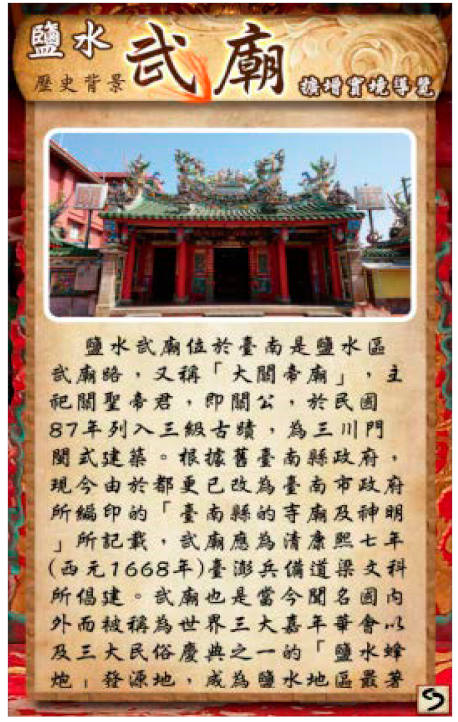 鹽水
武廟
歷史背景
擴增實境導覽
鹽水武廟位於臺南是鹽水區
武廟路，又稱「大關帝廟」，主
祀關聖帝君，即關公，於民國
87年列入三級古蹟，為三川門
閣式建築。根據舊臺南縣政府，
現今由於都更已改為臺南市政府
所編印的「臺南縣的寺廟及神明
」所記載，武廟應為清康熙七年
(西元1668年)臺澎兵備道梁文科
所倡建。武廟也是當今聞名國內
外而被稱為世界三大嘉年華會以
及三大民俗慶典之一的「鹽水蜂
炮」發源地，成為鹽水地區最著